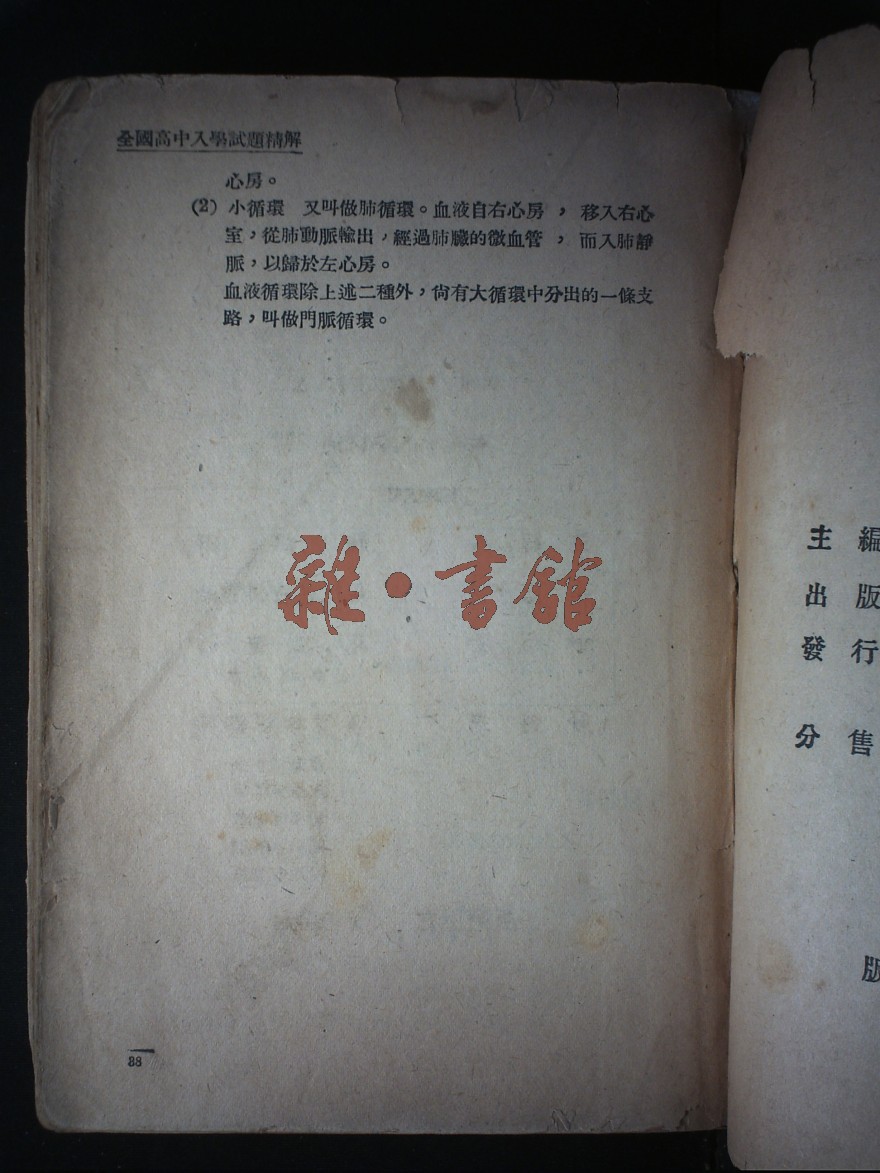 全國高中入學試題精解
心房。
(2) 小循環　又叫做肺循環。血液自右心房，移入右心
室，從肺動脈輸出，經過肺臟的微血管，而入肺靜
脈，以歸於左心房。
血液循環除上述二種外，尙有大循環中分出的一條支
路，叫做門脈循環。
雜•書館
88
主編
出版
發行
分售
版